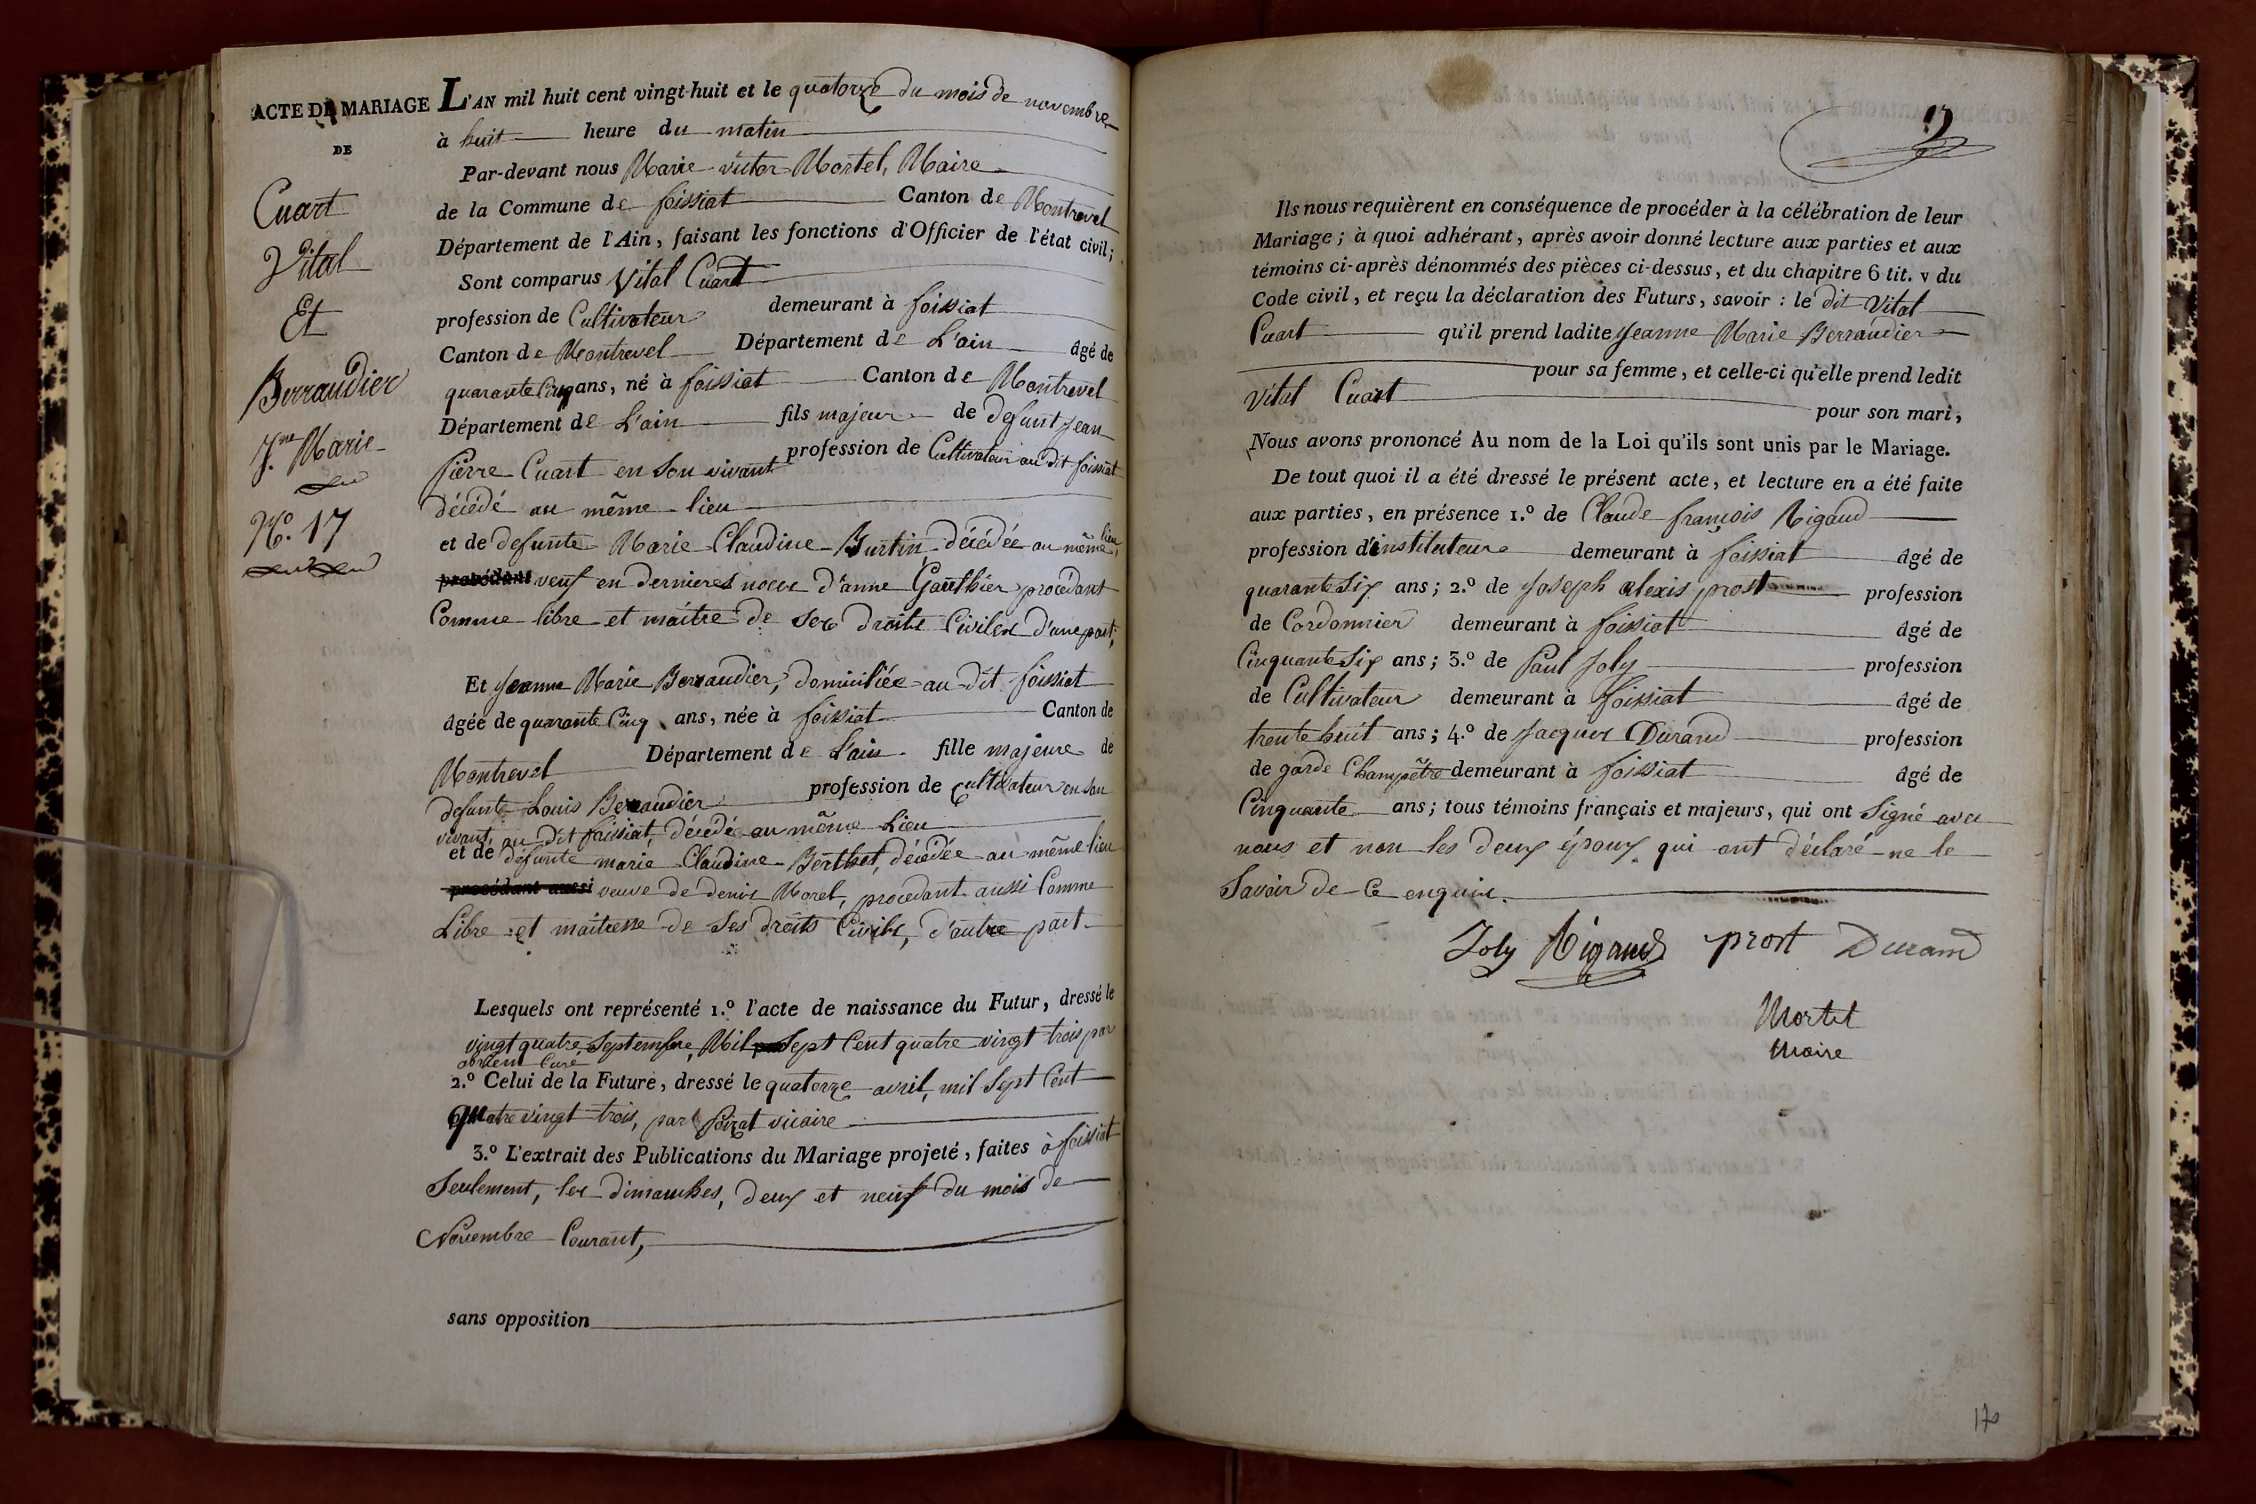 ACTE DE MARIAGE
DE
Cuart
Vital
Et
Berraudier
J.ne Marie
N.o 17
L'AN mil huit cent vingt-huit et le quatorze du mois de novembre
à huit heure du matin
Par-devant nous Marie victor Mortel, Maire
de la Commune de foissiat Canton de Montrevel
Département de l'Ain, faisant les fonctions d'Officier de l'état civil;
Sont comparus Vital Cuart
profession de Cultivateur demeurant à foissiat
Canton de Montrevel Département de L'ain âgé de
quarante Cinq ans, né à foissiat Canton de Montrevel
Département de L'ain fils majeur de defunt Jean
Pierre Cuart en son vivant profession de Cultivateur au dit foissiat
décédé au même lieu
et de defunte Marie Claudine Burtin décédée au même lieu,
procédant veuf en dernieres noces d'anne Gauthier procédant
Comme libre et maître de ses droits Civiles d'une part,
Et Jeanne Marie Berraudier, domiciliée au dit foissiat
âgée de quarante Cinq ans, née à foissiat Canton de
Montrevel Département de L'ain fille majeure de
defunt Louis Beraudier profession de Cultivateur en son
vivant, au dit foissiat, décédé au même Lieu
et de défunte marie Claudine Berthet, décédée au même lieu
procédant aussi veuve de denis Morel, procedant aussi Comme
Libre et maitresse de Ses droits Civils, d'autre part
Lesquels ont représenté 1.o l'acte de naissance du Futur, dressé le
vingt quatre Septembre, Mil Sept Cent quatre vingt trois par
Curé
2.o Celui de la Future, dressé le quatorze avril, mil Sept Cent
Quatre vingt trois, par Poizat vicaire
3.o L'extrait des Publications du Mariage projeté, faites à foissiat
Seulement, les dimanches, deux et neuf du mois de
Novembre Courant,
sans opposition
Ils nous requièrent en conséquence de procéder à la célébration de leur
Mariage; à quoi adhérant, après avoir donné lecture aux parties et aux
témoins ci-après dénommés des pièces ci-dessus, et du chapitre 6 tit. v du
Code civil, et reçu la déclaration des Futurs, savoir : le dit Vital
Cuart qu'il prend ladite Jeanne Marie Berraudier
pour sa femme, et celle-ci qu'elle prend ledit
Vital Cuart pour son mari,
Nous avons prononcé Au nom de la Loi qu'ils sont unis par le Mariage.
De tout quoi il a été dressé le présent acte, et lecture en a été faite
aux parties, en présence 1.o de Claude françois Rigaud
profession d'instituteur demeurant à foissiat âgé de
quarante Six ans; 2.o de Joseph alexis prost profession
de Cordonnier demeurant à foissiat âgé de
Cinquante Six ans; 3.o de Paul Joly profession
de Cultivateur demeurant à foissiat âgé de
trente huit ans; 4.o de Jacques Durand profession
de garde Champêtre demeurant à foissiat âgé de
Cinquante ans; tous témoins français et majeurs, qui ont Signé avec
nous et non les deux époux qui ont déclaré ne le
Savoir de Ce enquis.
Joly Rigaud prost Durand
Mortel
Maire
170